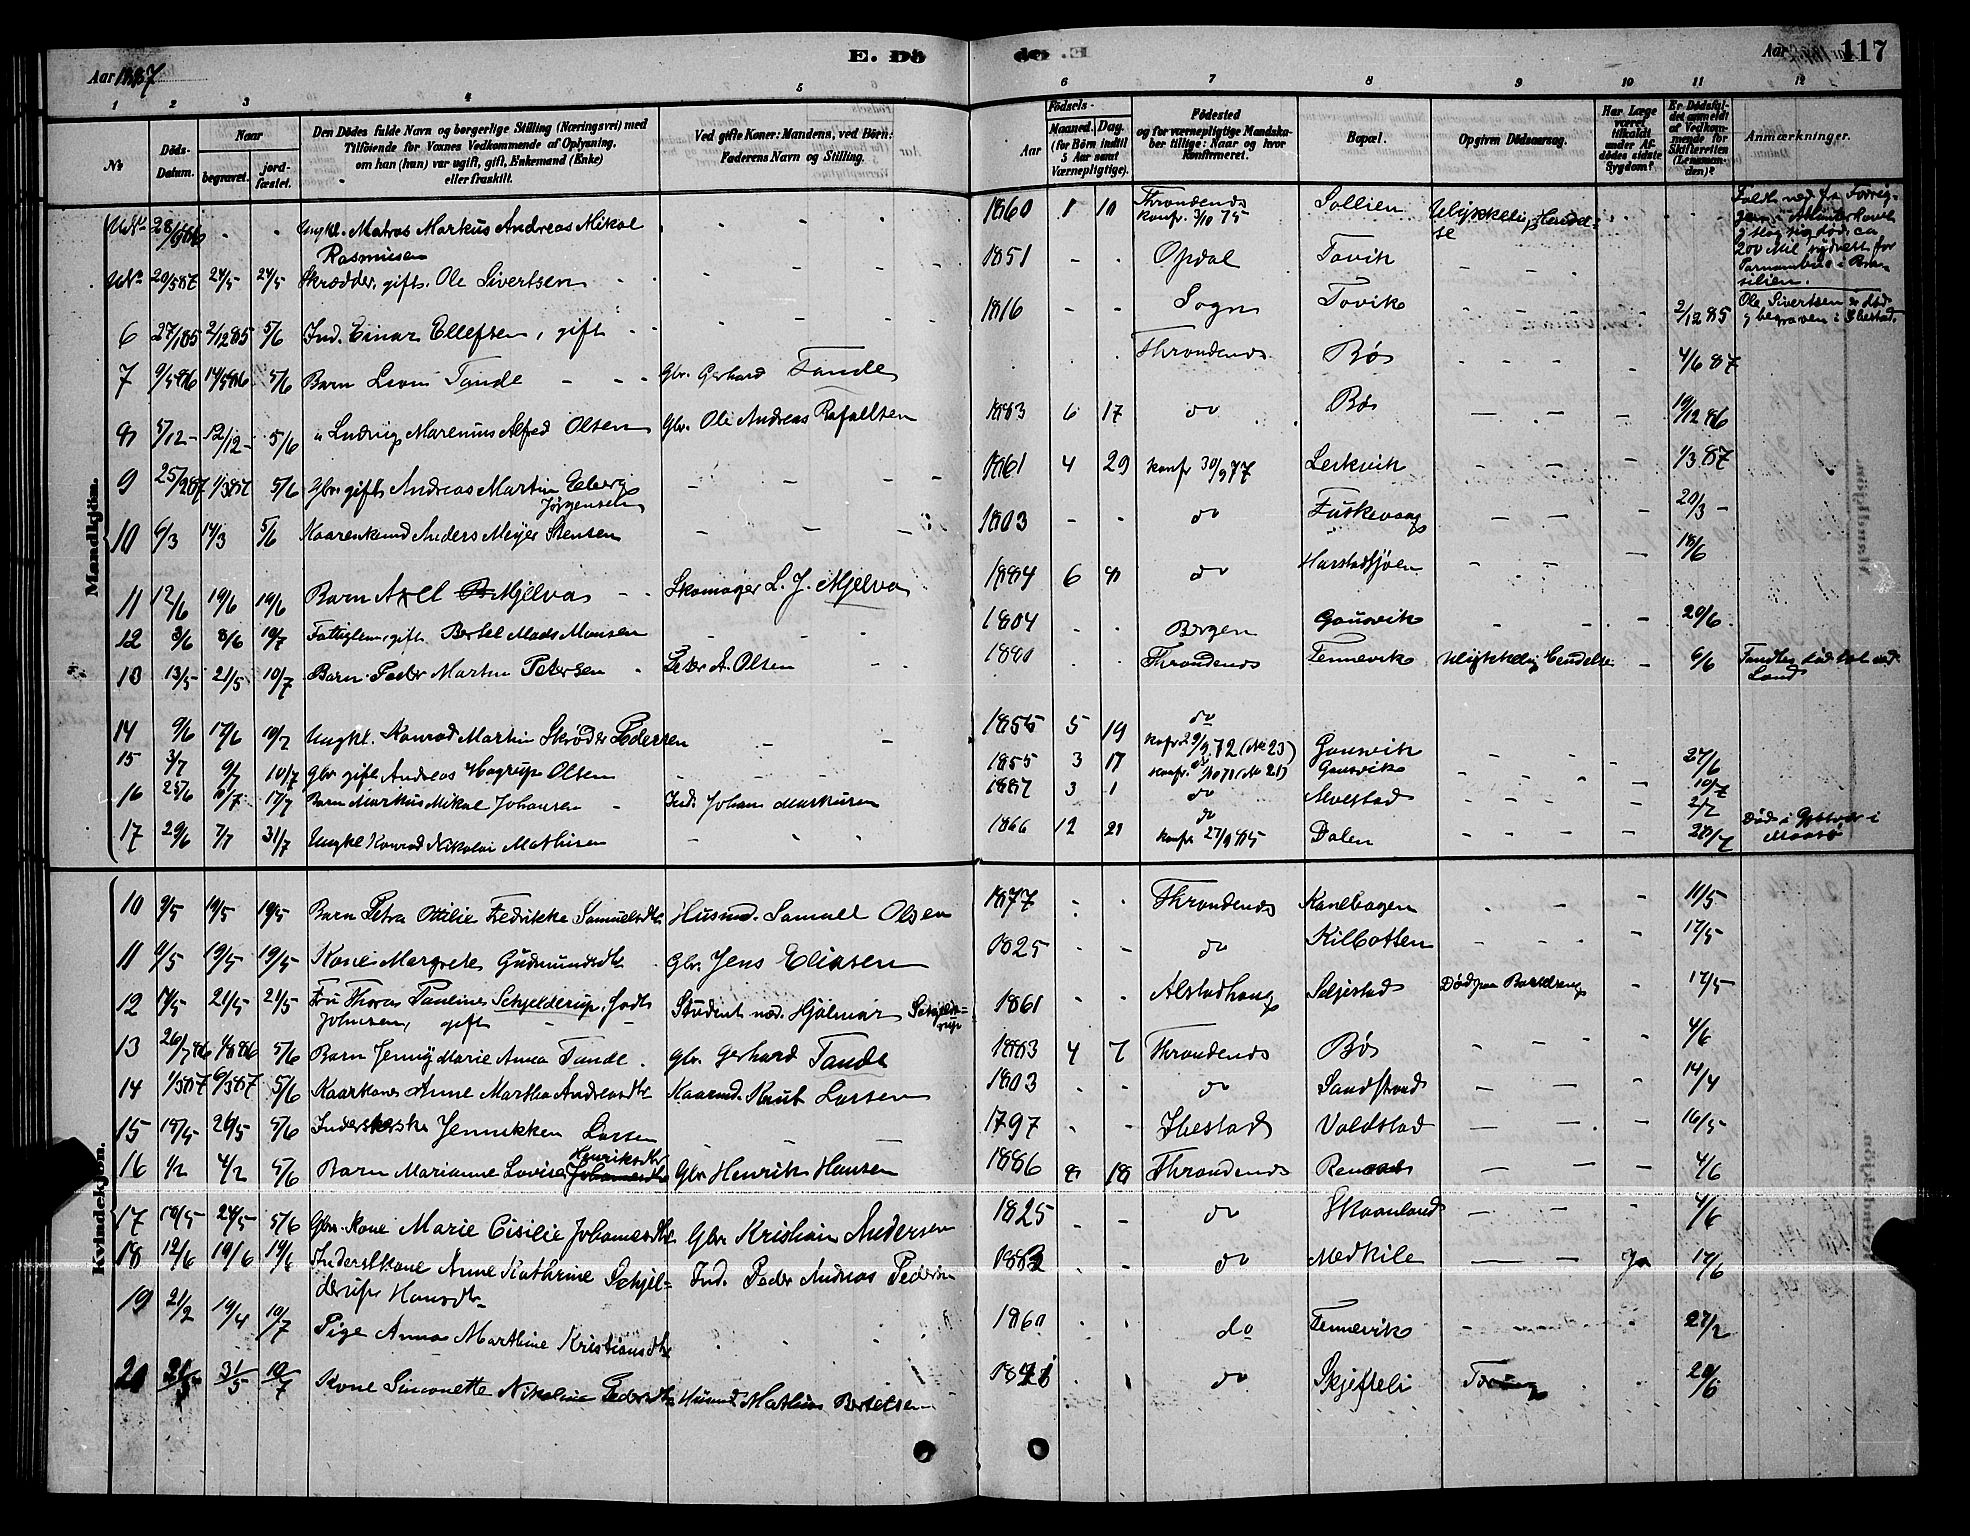 E. Dö
de E
Aar 1887
Aar
117
1 2 3 4 5 6 7 8 9 10 11 12
No
Döds-Datum.
Naar
begravet.
jord-fæstet.
Den Dödes fulde Navn og borgerlige Stilling (Næringsvei) med
Tilföiende for Voxnes Vedkommende af Oplysning,
om han (hun) var ugift, gift, Enkemand (Enke)
eller fraskilt.
Ved gifte Koner: Mandens, ved Börn:
Faderens Navn og Stilling.
Födsels-
Aar
Maaned. Dag.
(for Börn indtil
5 Aar samt
Værnepligtige).
Födested
og for værnepligtige Mandska-
ber tillige: Naar og hvor
konfirmeret.
Bopæl.
Opgiven Dödsaarsag.
Har Læge
været
tilkaldt
under Af-
dödes sidste
Sygdom?
Er Dödsfal-
det anmeldt
af Vedkom-
mende for
Skifteretten
(Lensman-
den)?
Anmærkninger.
Mandkjön.
Ungkl. Matros Markus Andreas Mikal Rasmussen - - - 1860 1 10 Throndenes konf. 3/10 75 Sollien Ulykkelig Hendelse
20/5 87 24/5 24/5 Skrædder, gift. Ole Sivertsen - - - 1851 - - Opdal Tovik - - - Ole Sivertsen er død og begraven i Ibestad.
6 27/1 85 2/12 85 5/6 Ind. Einar Ellefsen, gift - - - 1816 - - Sogn Tovik - - - 2/12 85
7 9/5 86 14/5 86 5/6 Barn Leoni Tande - - - Gbr. Gerhard Tande Throndenes Bø - - - 4/6 87
8 5/12 - 12/12 - 5/6 " Ludvig Marenius Alfred Olsen Gbr. Ole Andreas Rafaelsen 1883 6 17 do Bø - - - 19/12 86
9 25/2 87 1/3 87 5/6 Gbr. gift Andreas Martin Edvers Jørgensen - - - 1861 4 29 konf 30/9 77 Lerkvik - - - 1/3 87
10 6/3 14/3 5/6 Kaarenkemd Anders Meyer Stensen - - - 1803 - - do Fuskevaag - - - 20/3 -
11 12/6 19/6 19/6 Barn Axel Mjelva - - Skomager L. J. Mjelva 1884 6 8 do Harstadsjøen - - - 18/6
12 3/6 8/6 10/7 Fattiglem, gift Bertel Mads Monsen - - - 1804 - - Bergen Gausvik - - - 20/6
13 13/5 21/5 10/7 Barn Peder Martin Petersen - Peter A. Olsen 1880 Throndenes Tennevik Ulykkelig Hendelse - 6/6
14 9/6 17/6 10/7 Ungkl. Konrad Martin Skrøder Pedersen - - 1855 5 19 do Konf. 29/9 72 (No 23) Gausvik - - - 27/6
15 3/7 9/7 10/7 Gbr. gift Andreas Hagrup Olsen - - - 1855 3 17 Gausvik - - - 10/7
16 25/6 17/7 Barn Markus Mikal Johansen - Ind. Johan Markusen 1887 3 1 do Alvestad - - - 2/7
17 29/6 7/7 31/7 Ungkl Konrad Nikolai Mathisen - - - 1866 12 21 do Konf 27/9 85 Dalen - - - 28/7
Kvindekjön.
10 9/5 19/5 19/5 Barn Petra Ottilie Fredrikke Samuelsdtr Husmd. Samuel Olsen 1877 - - Throndenes Kanebogen - - - 11/5
11 9/5 19/5 19/5 Kone Margrete Gudmundsdtr Gbr. Jens Eliasen 1825 - - do Kilbotten - - - 17/5
12 14/5 21/5 21/5 Fru Thora Pauline Schjelderup, født Johnsen, gift - - Student med. Hjalmar Schjelderup 1861 - - Alstadhaug Seljestad Død paa Barselseng - 17/5
13 26/7 86 1/8 86 5/6 Barn Jenny Marie Anna Tande. Gbr. Gerhard Tande 1883 4 7 Throndenes Bø - - - 4/6
14 1/3 87 6/3 87 5/6 Kaarkone Anne Martha Andreasdtr Kaarmd. Knut Larsen 1803 - - do Sandstrand - - - 14/4
15 18/5 26/5 5/6 Inderskerske Jennikken Larsen - - - 1797 - - Ibestad Voldstad - - - 16/5
16 1/2 4/2 5/6 Barn Marianne Lovise Henriksdtr Gbr Henrik Hansen 1886 8 18 Throndenes - - - 4/6
17 18/5 24/5 5/6 Gbr. Kone Marie Cisilie Johannesdtr Gbr Kristian Andersen 1825 - - do Skaanland - - - 4/6
18 12/6 19/6 19/6 Inderstkone Anne Kathrine Schjelderup Hansdtr Ind. Peder Andreas Pedersen - - do Medkile - - Ja 17/6
19 21/2 19/4 10/7 Pige Anna Marthine Kristiansdtr - - - 1860 - - do Tennevik - - - 27/2
20 31/5 10/7 Kone Simonette Nikoline Pedersdtr Husmd Mathias Bertelsen - - do Skjefteli 20/6